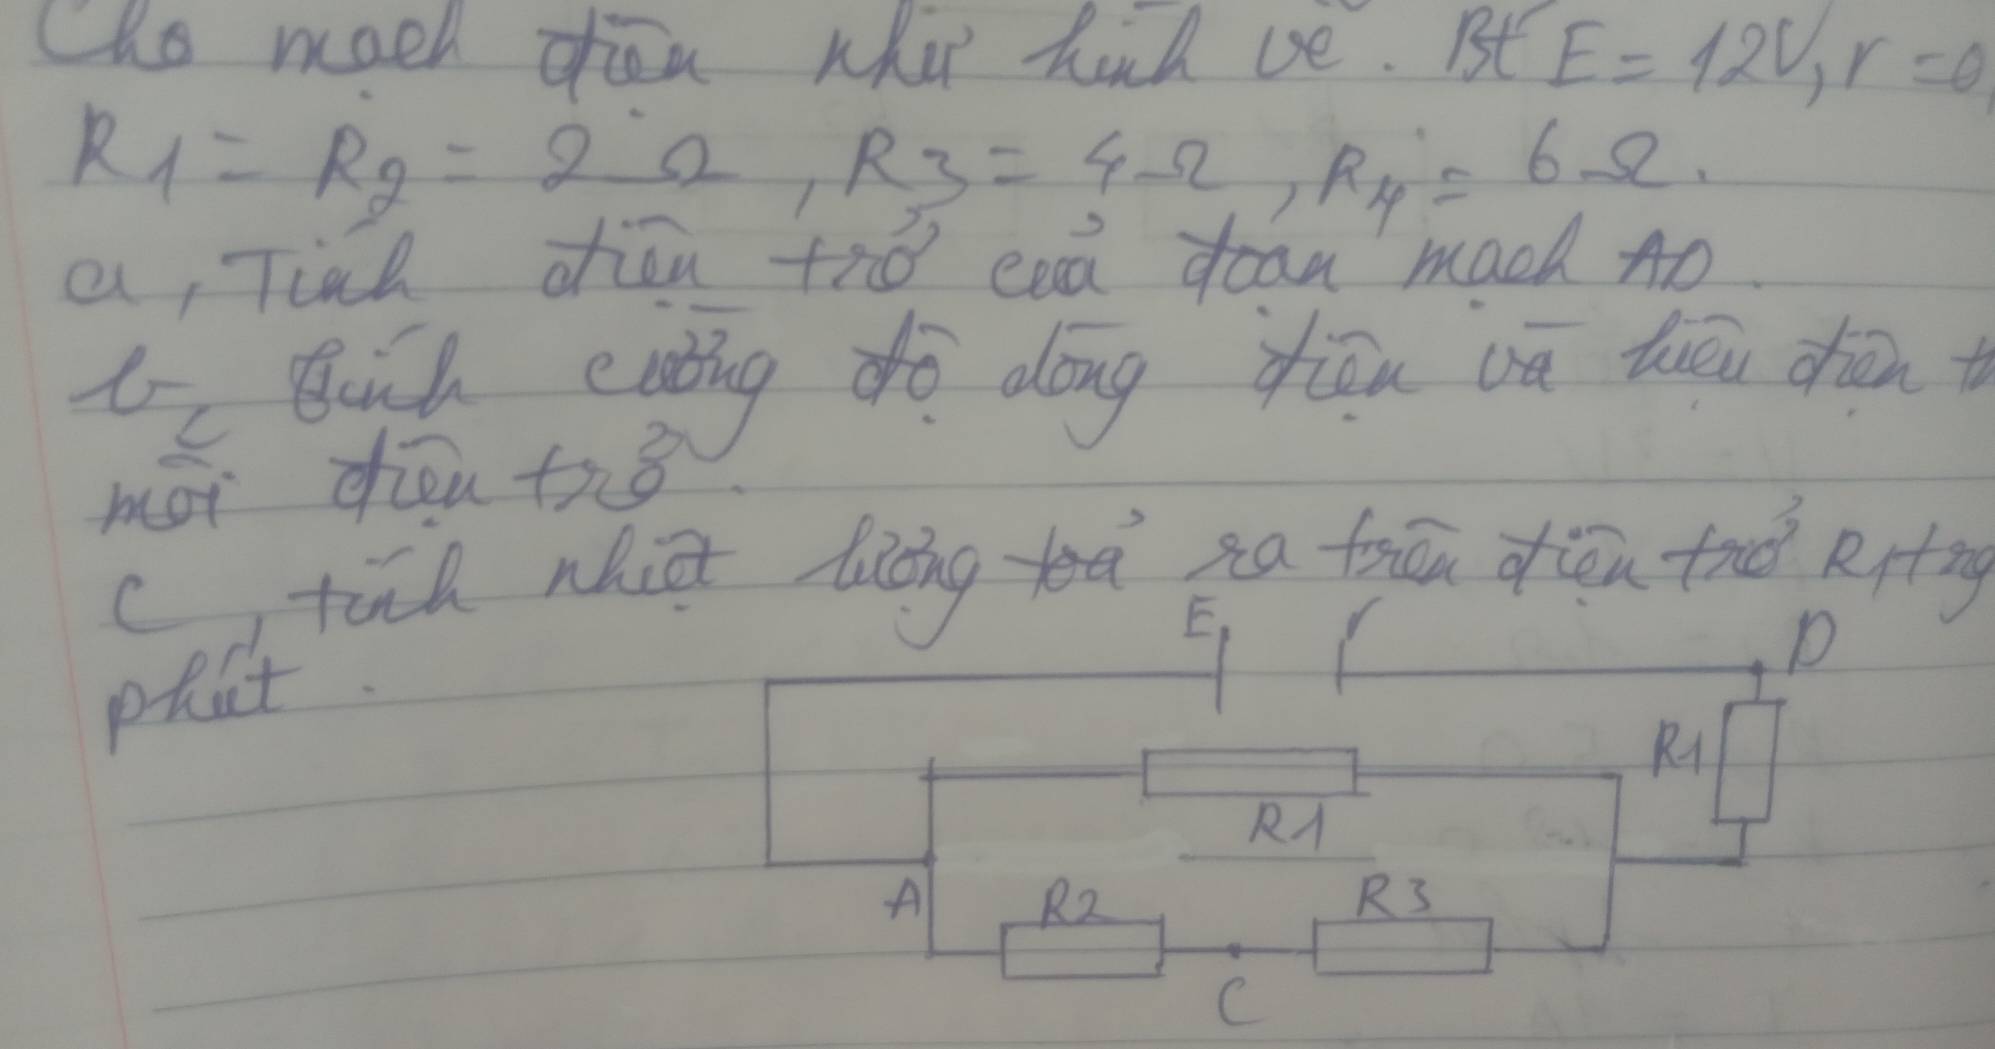 Cho mạch điện như hình vẽ. Bt E = 12V, r = 0,
R1 = R2 = 2 Ω, R3 = 4 Ω, R4 = 6 Ω.
a, Tính điện trở của đoạn mạch AD.
b, tính cường độ dòng điện và hiệu điện
mỗi điện trở.
c, tính nhiệt lượng toả ra trên điện trở R1
phút.
E r D
R1
R1
A R2 R3
C